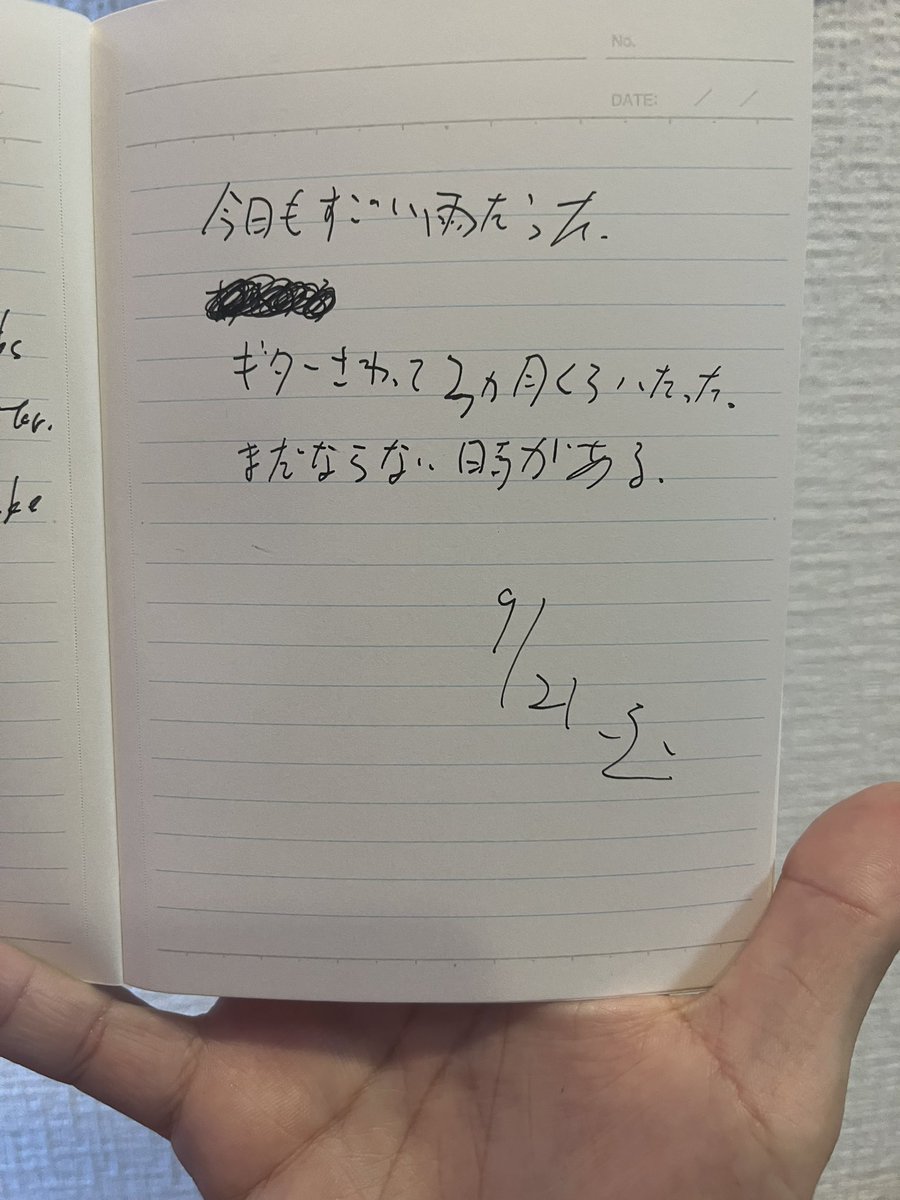 No.
DATE: / /
今日もすごい雨だった.
ギターさわって2ヵ月くらいたった.
まだならない時がある.
9/21